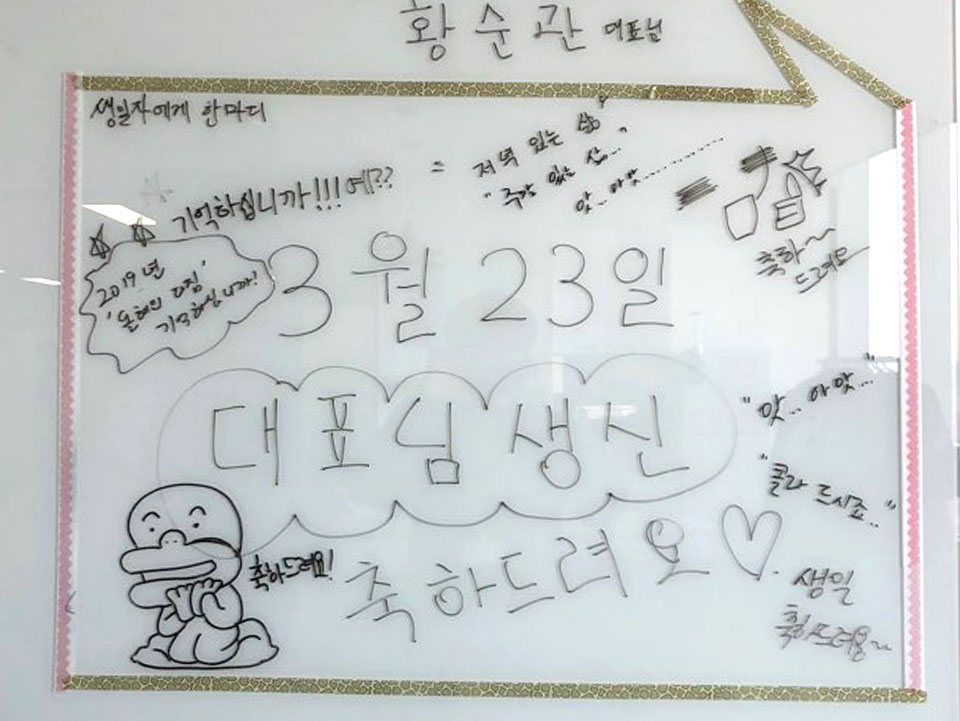 황순관 대표님
생일자에게 한마디
기억하십니까!!!예??
= 저녁 있는 삶?
"주말 있는 삶..."
앗..아앗.........
축하~
드려요
2019년
'은혜의 다짐'
기억하십니까!
3월 23일
대표님 생신
축하드려요♡.
"앗..아앗..."
"콜라 드시죠.."
축하드려요!
생일
축하드려용~